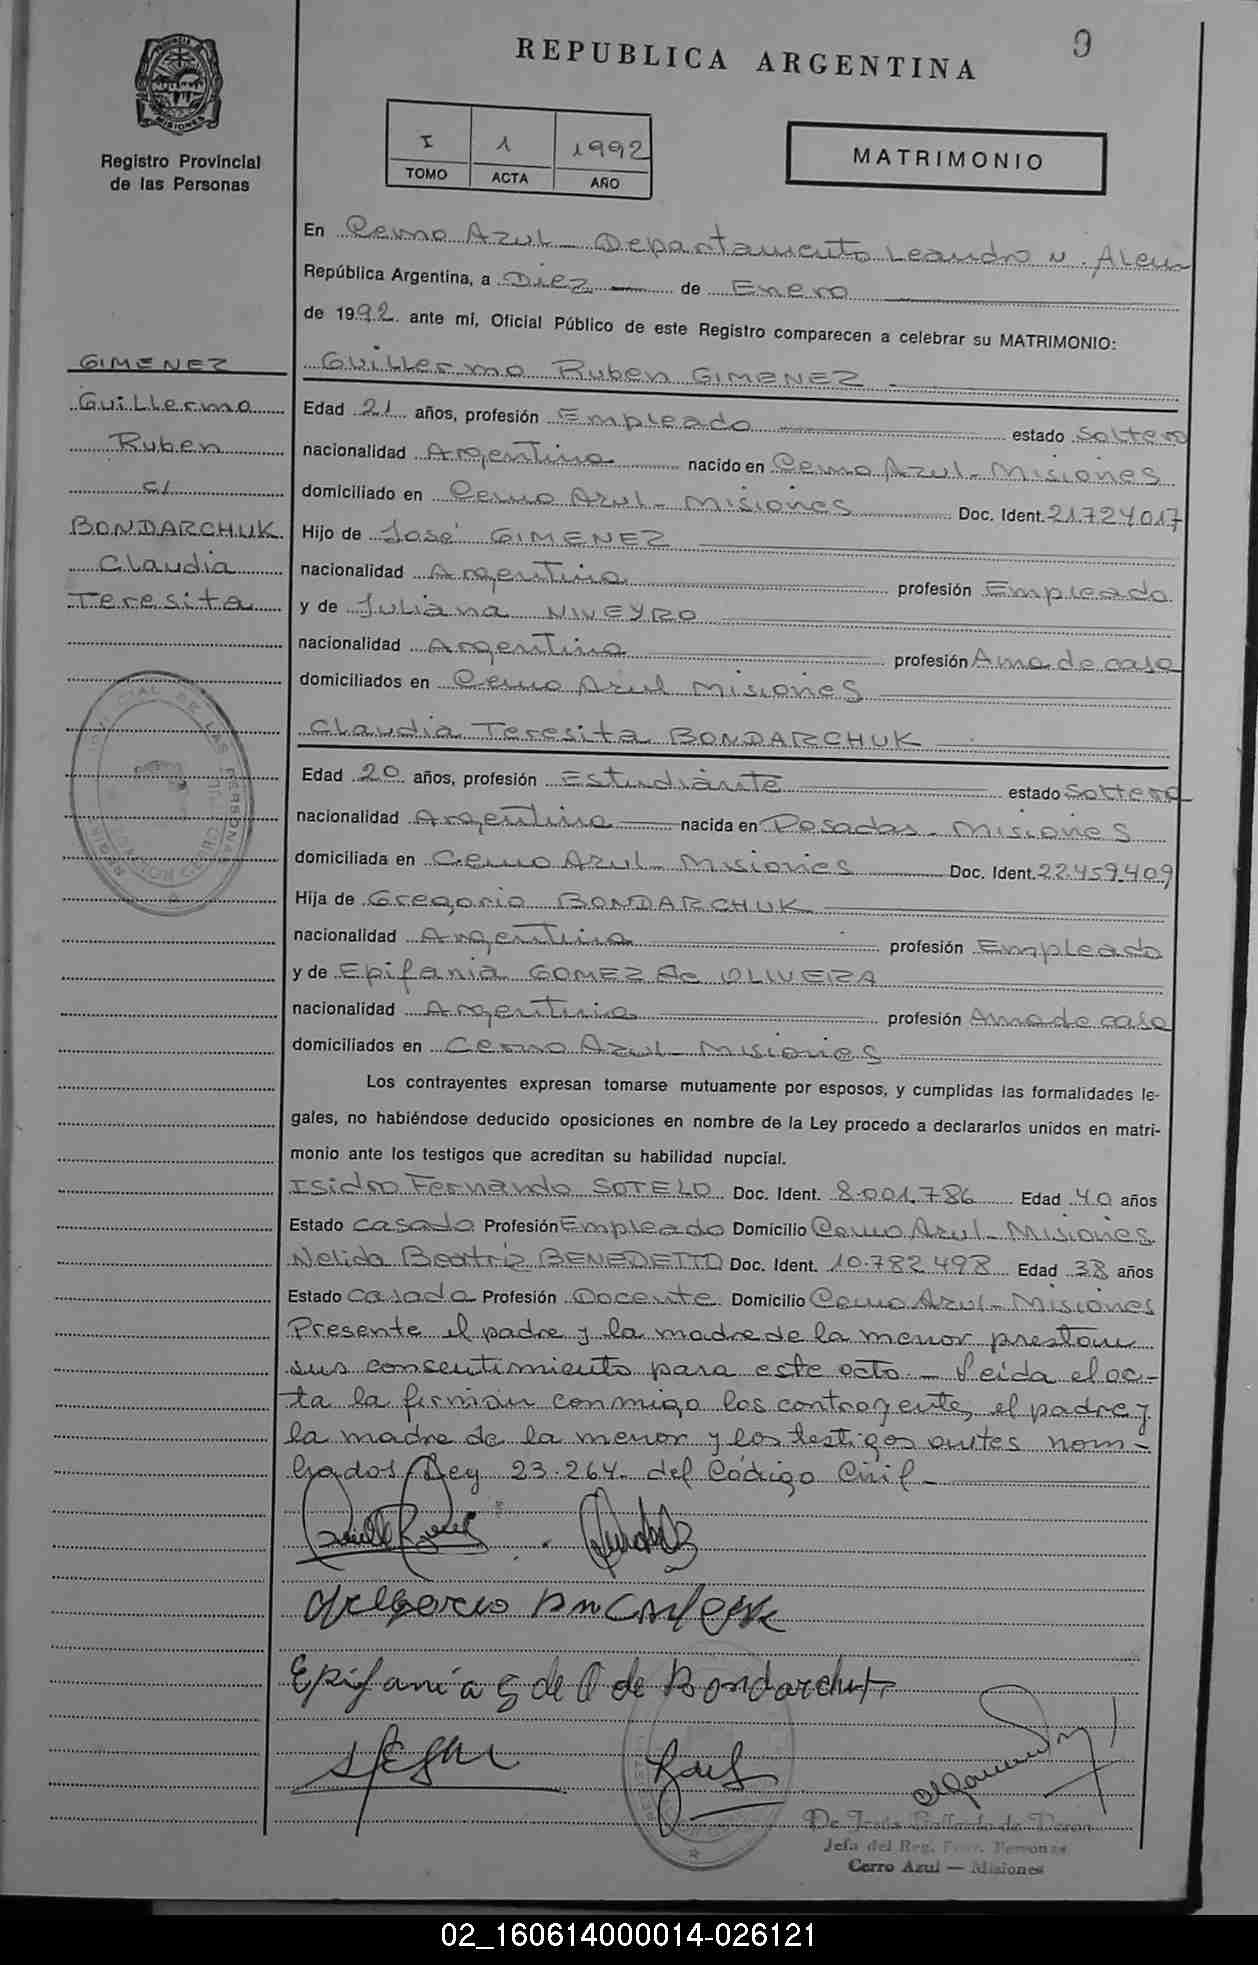 9
REPUBLICA ARGENTINA
PROVINCIA DE MISIONES
Registro Provincial
de las Personas
I 1 1992
TOMO ACTA AÑO
MATRIMONIO
En Cerro Azul - Departamento Leandro N. Alem
República Argentina, a Diez de Enero
de 1992 ante mí, Oficial Público de este Registro comparecen a celebrar su MATRIMONIO:
GIMENEZ
Guillermo
Ruben
c/
BONDARCHUK
Claudia
Teresita
Guillermo Ruben GIMENEZ
Edad 21 años, profesión Empleado estado Soltero
nacionalidad Argentina nacido en Cerro Azul - Misiones
domiciliado en Cerro Azul - Misiones Doc. Ident. 21.724.017
Hijo de José GIMENEZ
nacionalidad Argentina profesión Empleado
y de Juliana NIVEYRO
nacionalidad Argentina profesión Ama de casa
domiciliados en Cerro Azul Misiones
Claudia Teresita BONDARCHUK
Edad 20 años, profesión Estudiante estado Soltera
nacionalidad Argentina nacida en Posadas - Misiones
domiciliada en Cerro Azul - Misiones Doc. Ident. 22.459.409
Hija de Gregorio BONDARCHUK
nacionalidad Argentina profesión Empleado
y de Epifania GOMEZ de OLIVEIRA
nacionalidad Argentina profesión Ama de casa
domiciliados en Cerro Azul - Misiones
Los contrayentes expresan tomarse mutuamente por esposos, y cumplidas las formalidades le-
gales, no habiéndose deducido oposiciones en nombre de la Ley procedo a declararlos unidos en matri-
monio ante los testigos que acreditan su habilidad nupcial.
Isidro Fernando SOTELO Doc. Ident. 8.001.786 Edad 40 años
Estado casado Profesión Empleado Domicilio Cerro Azul - Misiones
Nelida Beatriz BENEDETTO Doc. Ident. 10.782.498 Edad 38 años
Estado casada Profesión Docente Domicilio Cerro Azul - Misiones
Presente el padre y la madre de la menor prestan
sus consentimiento para este acto - Leida el ac-
ta la firman conmigo los contrayentes, el padre y
la madre de la menor y los testigos antes nom-
brados / Ley 23.264 del Código Civil -
Epifanía G de O de Bondarchuk
Jefa del Reg. Prov. Personas
Cerro Azul — Misiones
02_160614000014-026121